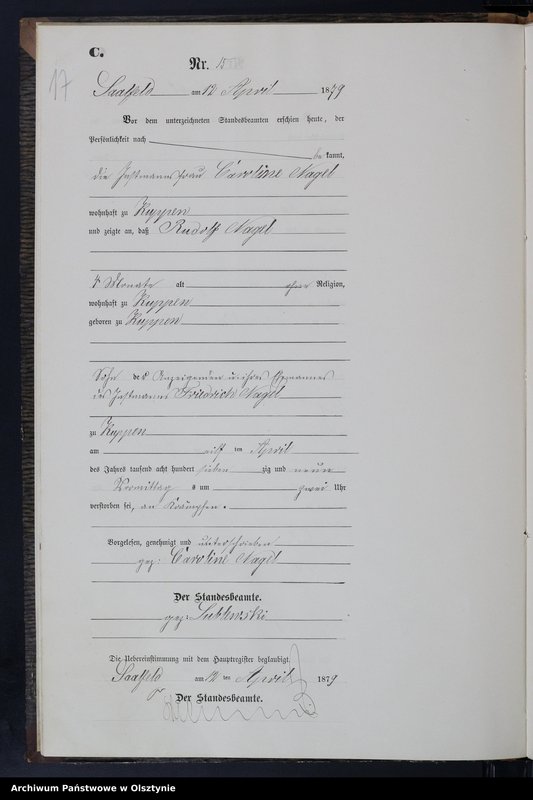 C.
Nr. 15
17
Saalfeld am 12 April 1879
Vor dem unterzeichneten Standesbeamten erschien heute, der
Persönlichkeit nach
be kannt,
die Instmannsfrau Caroline Nagel
wohnhaft zu Kuppen
und zeigte an, daß Rudolf Nagel
4 Monate alt Religion,
wohnhaft zu Kuppen
geboren zu Kuppen
Sohn des Anzeigenden u ihres Ehemannes
des Instmanns Friedrich Nagel
zu Kuppen
am elf ten April
des Jahres tausend acht hundert sieben zig und neun
Vormittag s um zwei Uhr
verstorben sei, an Krämpfen.
Vorgelesen, genehmigt und unterschrieben
gez: Caroline Nagel
Der Standesbeamte.
gez:
Die Uebereinstimmung mit dem Hauptregister beglaubigt.
Saalfeld am 12 ten April 1879
Der Standesbeamte.
Archiwum Państwowe w Olsztynie